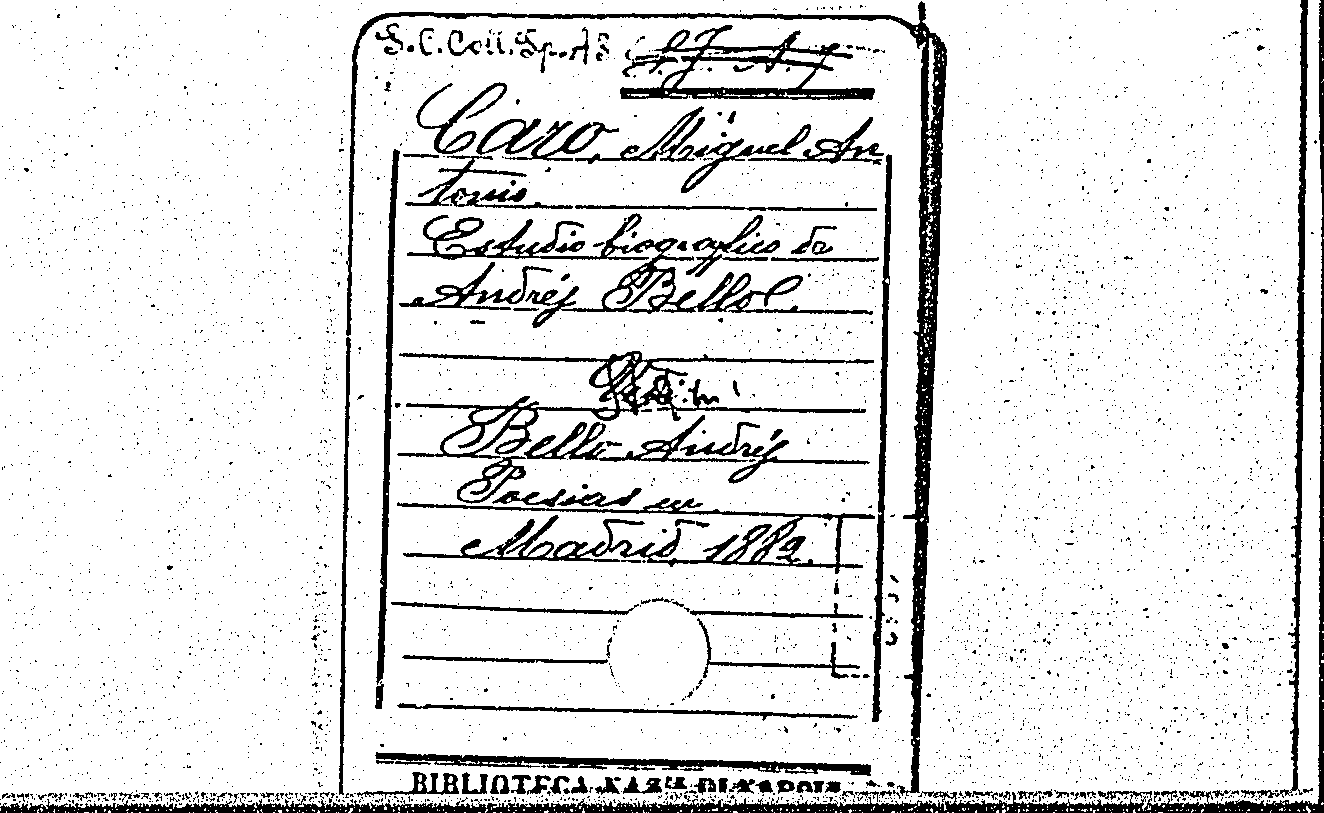 S.C. Coll. Sp. A 8
Caro, Miguel An
tonio.
Estudio biografico de
Andrés Bello.
Bello Andrés
Poesias
Madrid, 1882.
BIBLIOTECA NAZ. DI NAPOLI